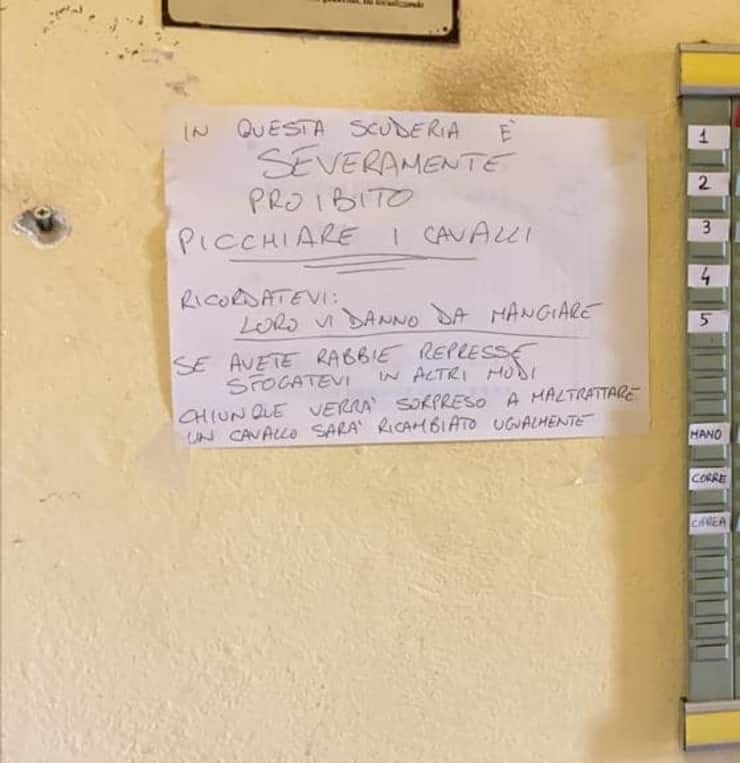 IN QUESTA SCUDERIA E'
SEVERAMENTE
PROIBITO
PICCHIARE I CAVALLI
RICORDATEVI:
LORO VI DANNO DA MANGIARE
SE AVETE RABBIE REPRESSE
SFOGATEVI IN ALTRI MODI
CHIUNQUE VERRA' SORPRESO A MALTRATTARE
UN CAVALLO SARA' RICAMBIATO UGUALMENTE
1
2
3
4
5
MANO
CORRE